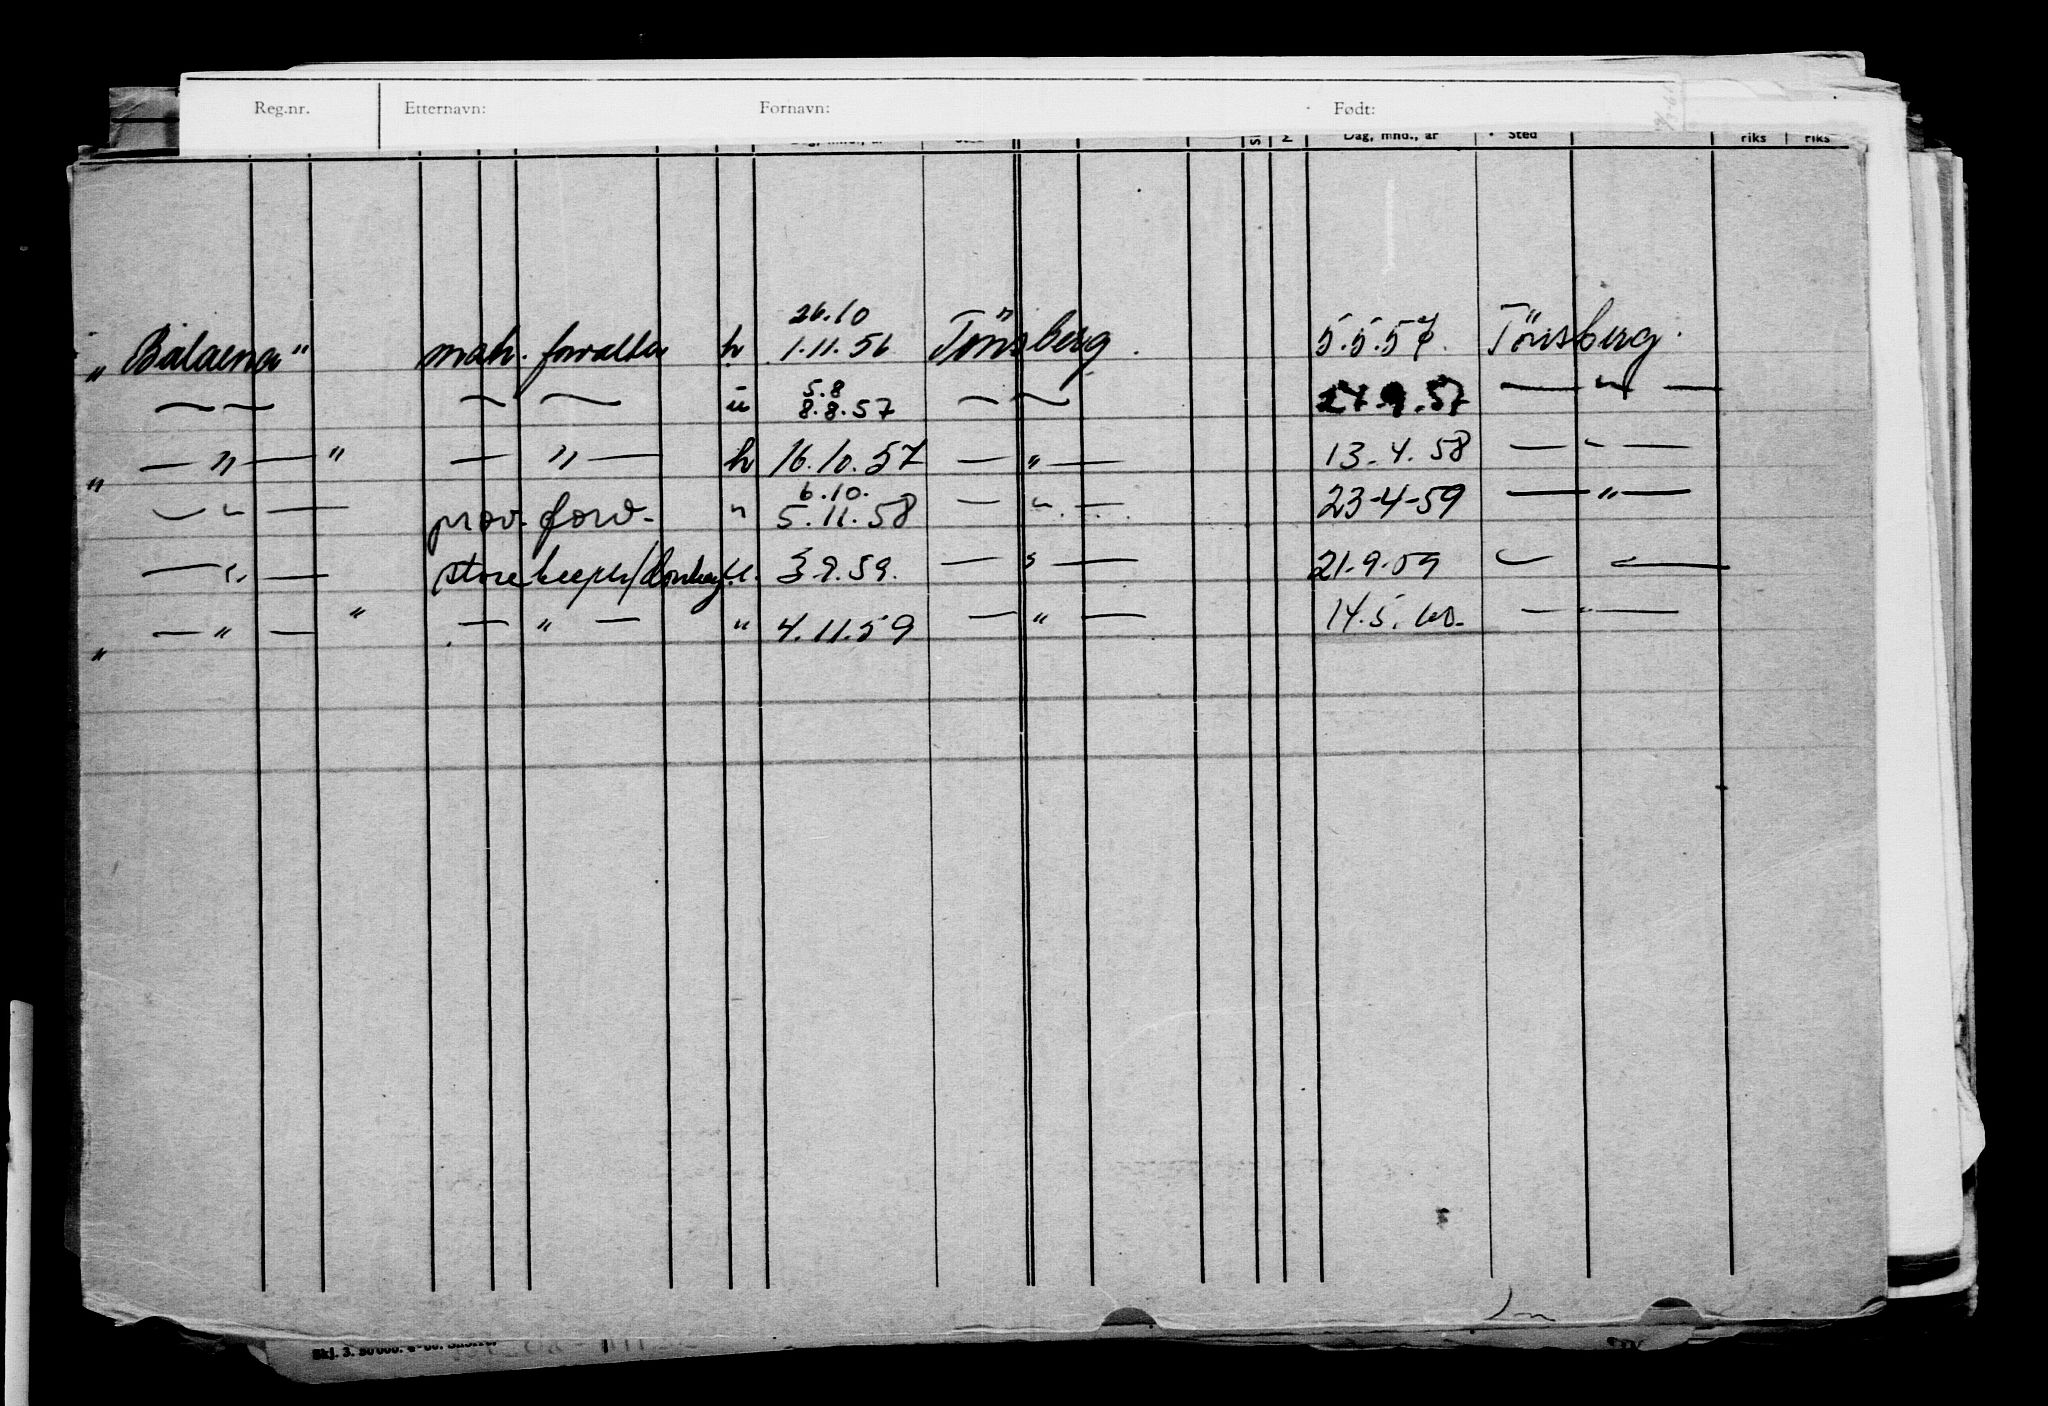 Reg.nr. Etternavn: Fornavn: Født:
Dag, mnd., år Sted riks riks
26.10
„Balaena" forvalter h 1.11.56 Tönsberg. 5.5.57. Tönsberg.
5.8
— — — — u 8.8.57 — — 27.9.57 — " —
„ — " — " — " — h 16.10.57 — " — 13.4.58 — " —
6.10.
— " — prov. forv. " 5.11.58 — " — 23-4-59 — " —
— " — storekeeper/ u. 3.9.59. — " — 21-9-59 — —
„ — " — " — " — " 4.11.59 — " — 14.5.60. — " —
Skj. 3.